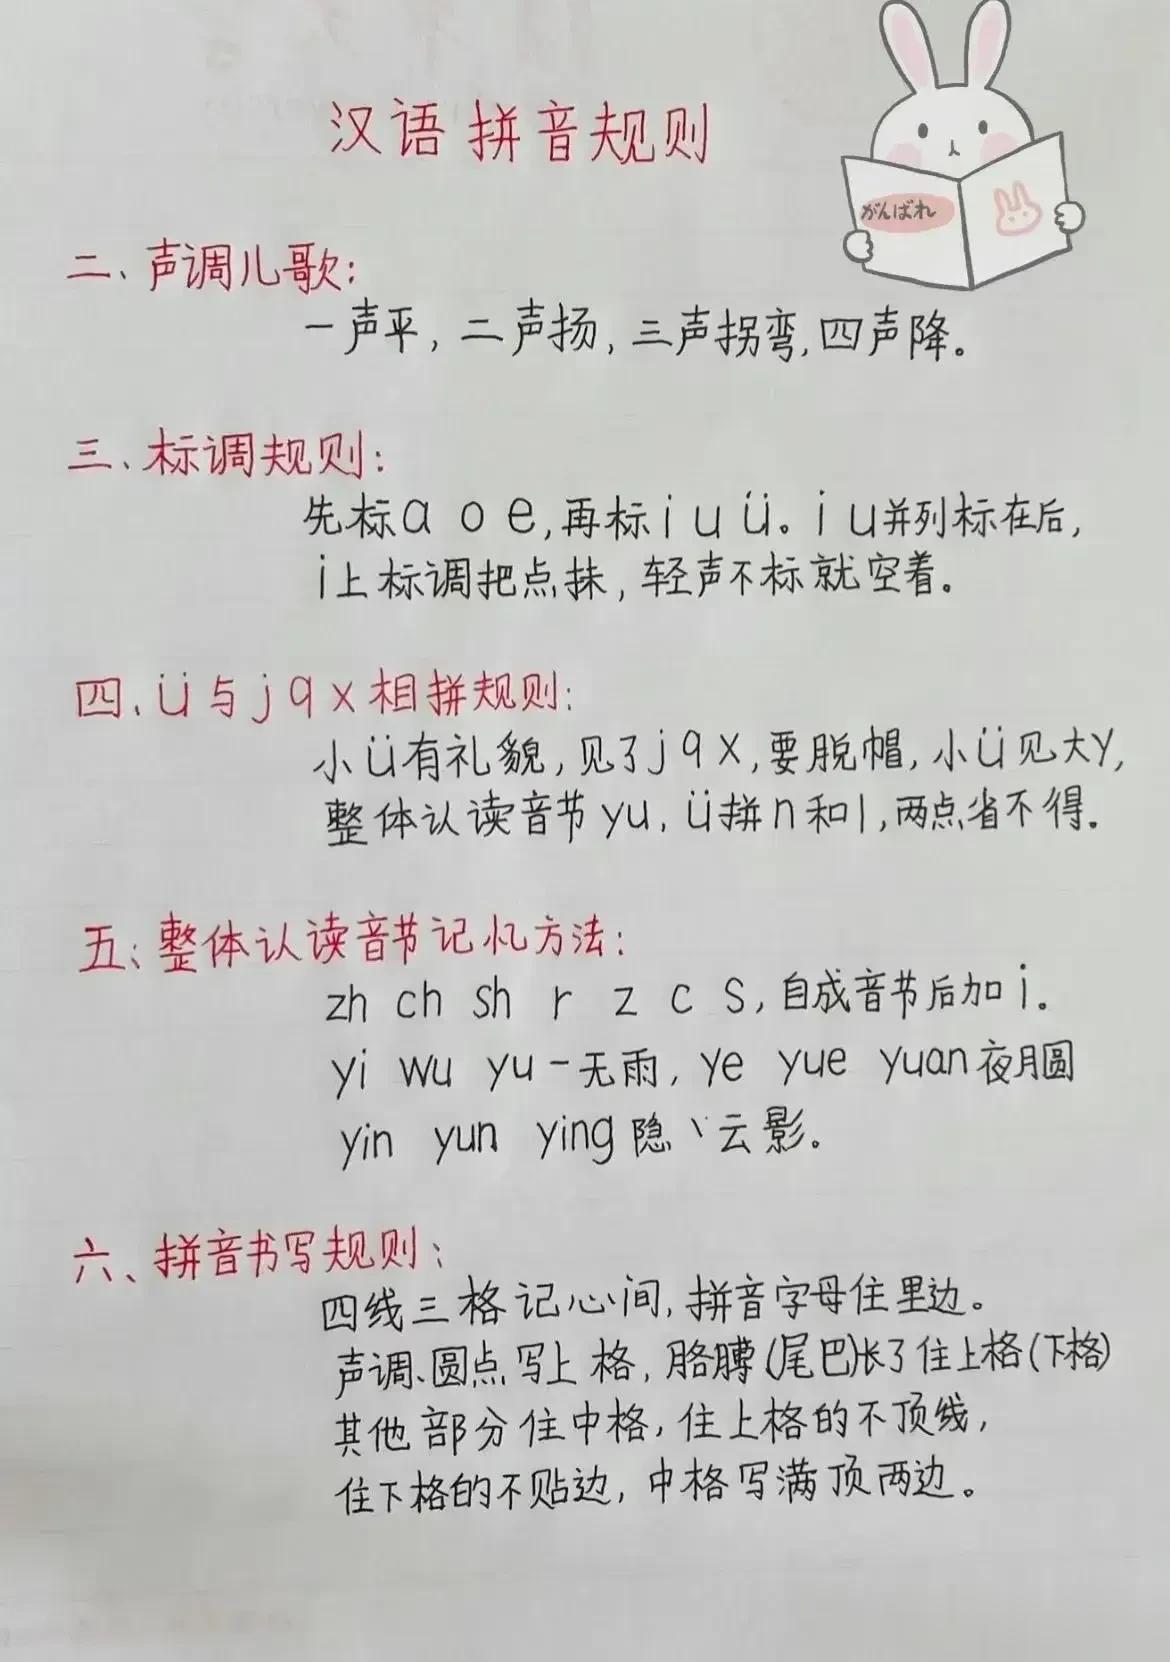 汉语拼音规则
がんばれ
二、声调儿歌:
一声平,二声扬,三声拐弯,四声降。
三、标调规则:
先标ɑ o e,再标i u ü。i u并列标在后,
i上标调把点抹,轻声不标就空着。
四、ü与j q x相拼规则:
小ü有礼貌,见了j q x,要脱帽,小ü见大y,
整体认读音节yu,ü拼n和l,两点省不得.
五:整体认读音节记忆方法:
zh ch sh r z c s,自成音节后加i。
yi wu yu一无雨,ye yue yuan夜月圆
yin yun ying隐丶云影。
六、拼音书写规则:
四线三格记心间,拼音字母住里边。
声调、圆点写上格,胳膊(尾巴)长了住上格(下格)
其他部分住中格,住上格的不顶线,
住下格的不贴边,中格写满顶两边。